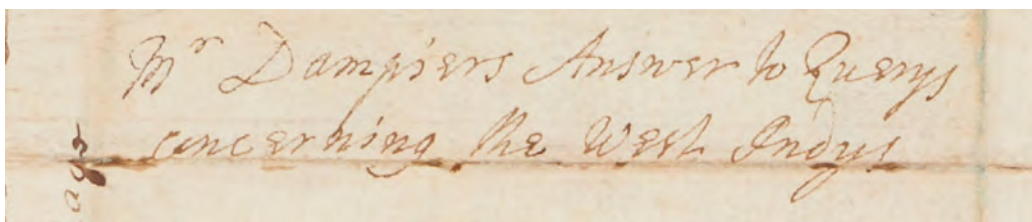 Mr Dampiers Answer to Querys
concerning the West Indys